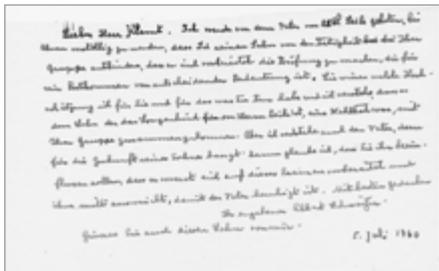 Lieber Herr Ich werde von dem Vater von gebeten, bei
Ihnen vorstellig zu werden, dass Sie seinen Sohn von der Tätigkeit bei Ihrer
Gruppe entbinden, dass er sich vorbereitet die Prüfung zu machen, die für
sein Fortkommen von entscheidender Bedeutung ist. Sie wissen welche Hoch-
schätzung ich für Sie und für das was Sie tun habe und ich verstehe, dass es
dem Sohn von Ihnen eine mit
Ihrer Gruppe zusammenzukommen. Aber ich verstehe auch den Vater, dem
für die Zukunft seines Sohnes bangt. Darum glaube ich, dass Sie ihn beein-
flussen sollten, dass er zuerst sich auf dieses Examen vorbereitet und
ihm nicht ausweicht, damit der Vater beruhigt ist. Mit besten Gedanken
Ihr ergebener Albert Schweitzer.
Grüssen Sie auch diesen Sohn von mir.
5. Juli 1960